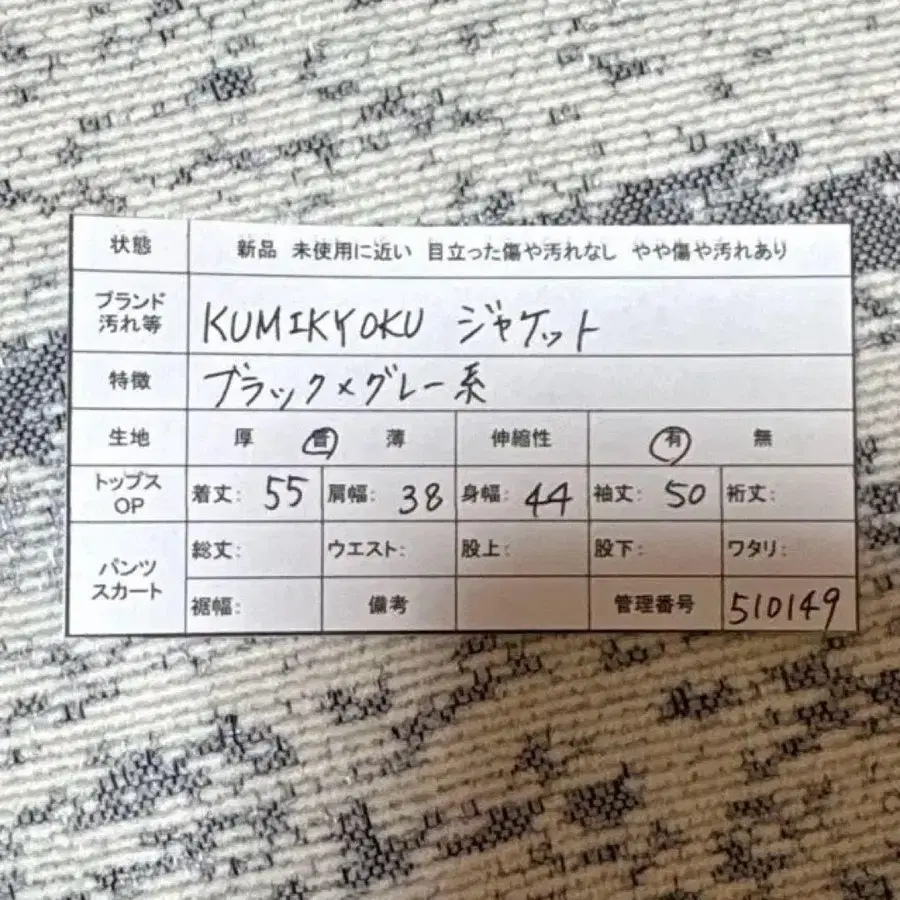 状態 新品 未使用に近い 目立った傷や汚れなし やや傷や汚れあり
ブランド
汚れ等 KUMIKYOKU ジャケット
特徴 ブラック×グレー系
生地 厚 普 薄 伸縮性 有 無
トップス
OP 着丈: 55 肩幅: 38 身幅: 44 袖丈: 50 裄丈:
パンツ
スカート 総丈: ウエスト: 股上: 股下: ワタリ:
裾幅: 備考 管理番号 510149